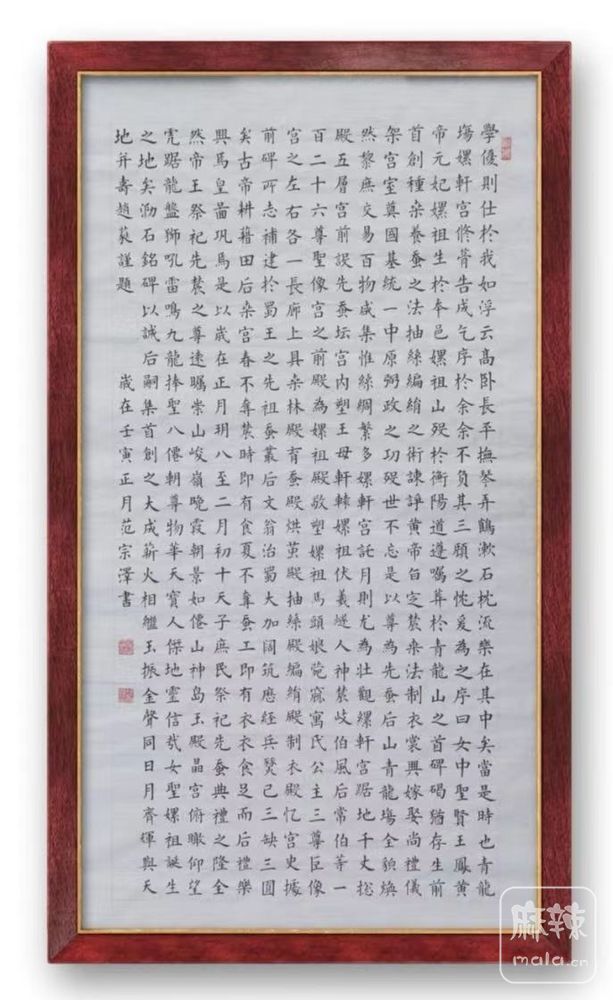 學優則仕於我如浮云高卧長平撫琴弄鶴漱石枕流樂在其中矣當是時也青龍
塲嫘軒宮修葺告成乞序於余余不負其三顧之忱爰為之序曰女中聖賢王鳳黄
帝元妃嫘祖生於本邑嫘祖山殁於衡陽道遵囑葬於青龍山之首碑碣猶存生前
首創種桒養蚕之法抽絲編絹之術諫諍黄帝旨定農桒法制衣裳興嫁娶尚禮儀
架宮室奠國基統一中原弼政之功殁世不忘是以尊為先蚕后山青龍塲全貌煥
然黎庶交易百物咸集惟絲綢繁多嫘軒宮託月則尤為壯觀嫘軒宮踞地千丈
殿五層宮前設先蚕坛宮内塑王母軒轅嫘祖伏羲燧人神農岐伯風后常伯等一
百二十六尊聖像宮之前殿為嫘祖殿敬塑嫘祖馬頭娘菀窳寓氏公主三尊巨像
宮之左右各一長廊上具桒林殿育蚕殿烘茧殿抽絲殿編絹殿制衣殿忆宮史據
前碑所志補建於蜀王之先祖蚕叢后文翁治蜀大加闊筑應經兵燹已三缺三圓
矣古帝耕藉田后桒宮春不奪農時即有食夏不奪蚕工即有衣衣食足而后禮樂
興焉皇啚巩焉是以歲在正月玥八至二月初十天子庶民祭祀先蚕典禮之隆全
然帝王祭祀先農之尊遠矚崇山峻嶺晚霞朝景如僊山神岛玉殿晶宮俯瞰仰望
虎踞龍盤獅吼雷鳴九龍捧聖八僊朝尊物華天寳人傑地靈信㦲女聖嫘祖誕生
之地矣泐石銘碑以誠后嗣集首創之大成薪火相繼玉振金聲同日月齊輝與天
地并壽趙蕤謹題
歲在壬寅正月范宗澤書
麻辣
mala.cn